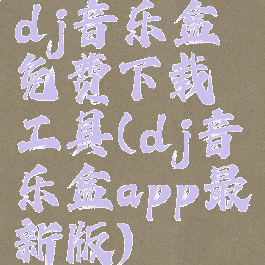 dj音乐盒
免费下载
工具(dj音
乐盒app最
新版)